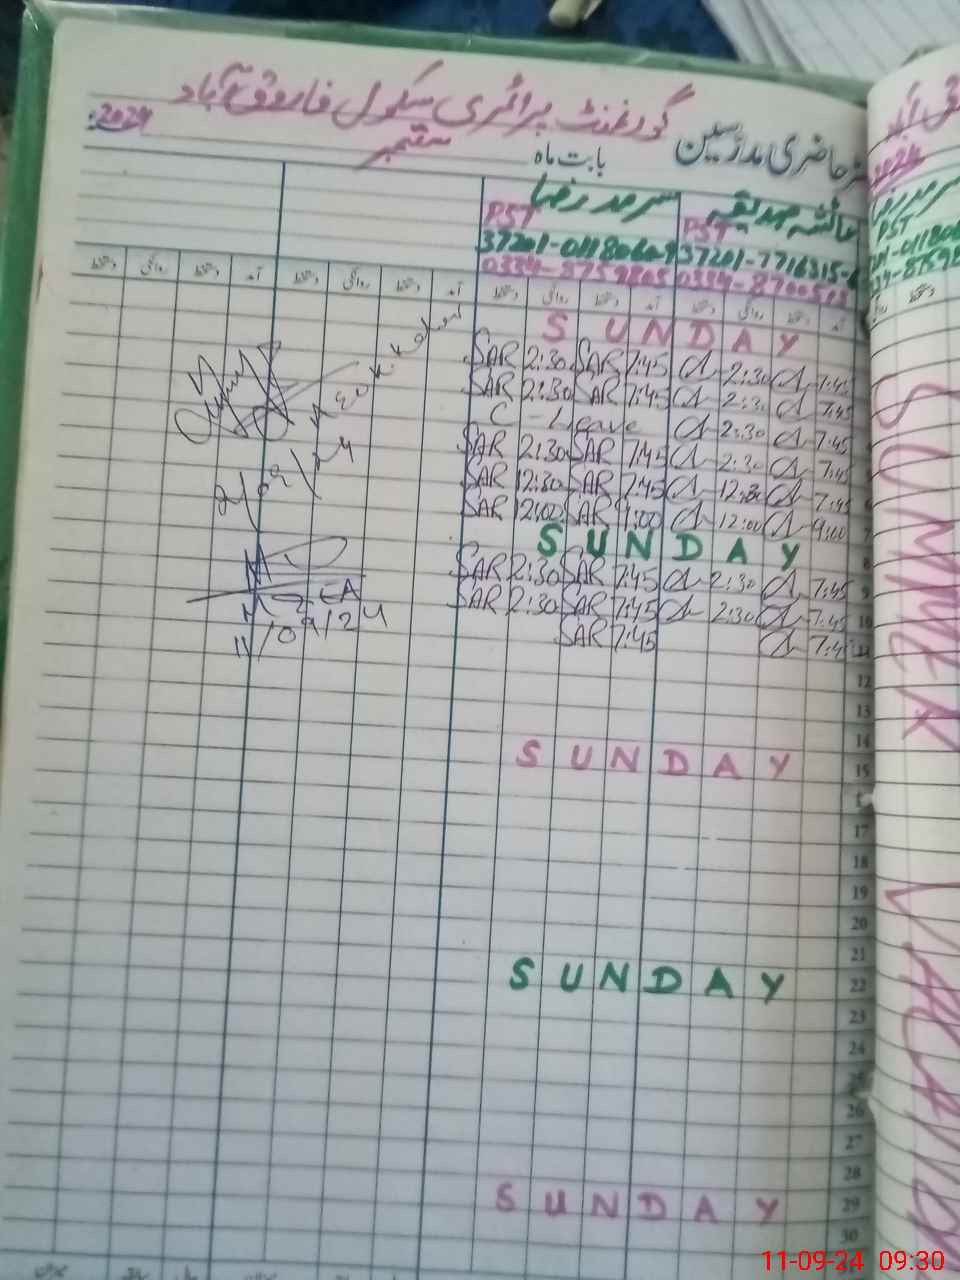 گورنمنٹ پرائمری سکول فاروق آباد
حاضری مدرسین بابت ماہ ستمبر 2024
عائشہ صدیقہ سرمد رضا
PST PST
37201-7716315-
0334-8759805
آمد دستخط روانگی دستخط آمد دستخط روانگی دستخط آمد دستخط روانگی دستخط آمد دستخط روانگی دستخط
SUNDAY
SAR 2:30 SAR 7:45 2:30 7:45
SAR 2:30 SAR 7:45 2:30 7:45
C - Leave 2:30 7:45
SAR 2:30 SAR 7:45 2:30 7:45
SAR 12:30 SAR 7:45 12:30 7:45
SAR 12:00 SAR 9:00 12:00 9:00 7
SUNDAY 8
SAR 2:30 SAR 7:45 2:30 7:45 9
SAR 2:30 SAR 7:45 2:30 7:45 10
SAR 7:45 7:45 11
2/09/24
11/09/24
12
13
14
SUNDAY 15
17
18
19
20
21
SUNDAY 22
23
24
25
26
27
28
SUNDAY 29
30
2024
PST
SUMMER
11-09-24 09:30